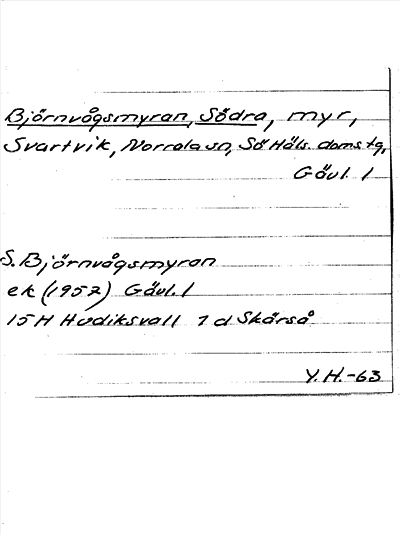 Björnvågsmyran, Södra, myr,
Svartvik, Norrala sn, Sö Häls. doms.tg,
Gävl. l
S. Björnvågsmyran
ek (1957) Gävl. l
15H Hudiksvall 1d Skärså
Y. H.-63